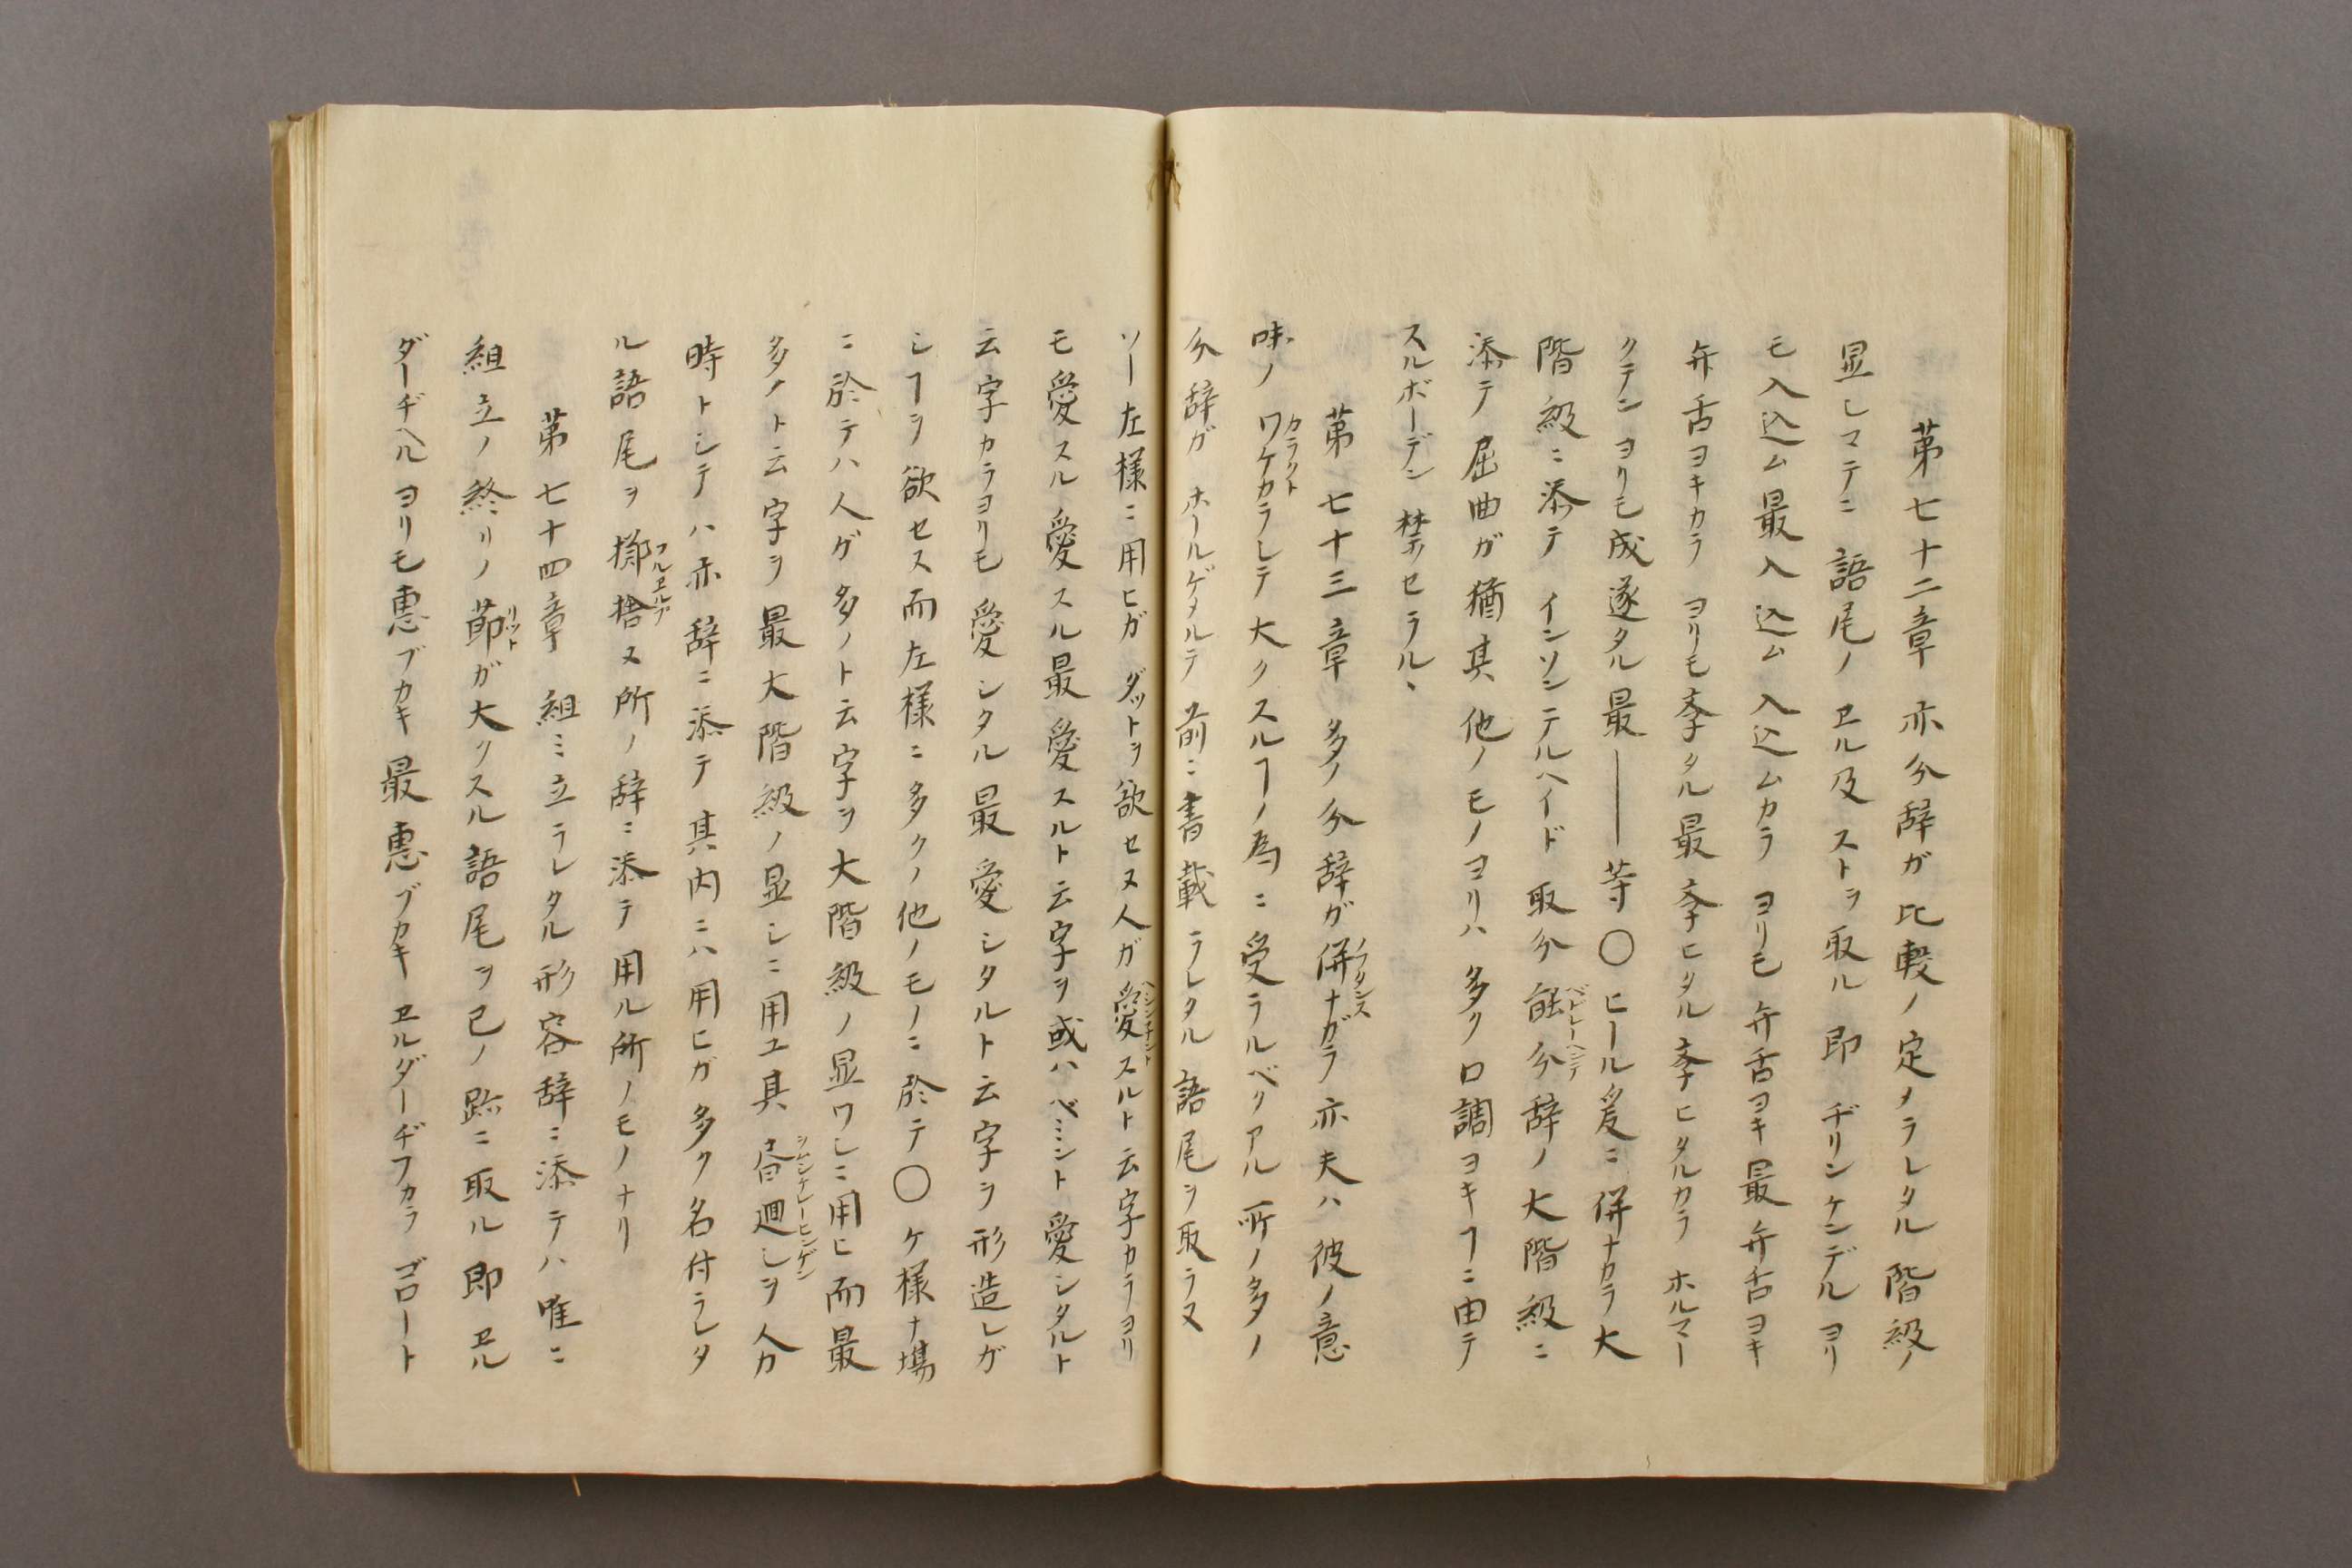 第七十二章 亦分辞ガ比較ノ定メラレタル階級ノ
显しマテニ 語尾ノ ヱル及 ストヲ 取ル 即 ヂリンケンデル ヨリ
モ 入込ム最入込ム 入込ムカラ ヨリモ 弁舌ヨキ最弁舌ヨキ
弁舌ヨキカラ ヨリモ 孝タル最孝ヒタル 孝ヒタルカラ ホルマー
クテン ヨリモ成遂タル最――等〇ヒール爰ニ併ナカラ大
階級ニ添テ インソンテルヘイド 取分 分辞ノ大階級ニ
添テ屈曲ガ猶其他ノモノヨリハ多ク口調ヨキヿニ由テ
スルボーデン禁セラル、
第七十三章 多ノ分辞ガ併ナガラ亦夫ハ彼ノ意
味ノ ワケカラレテ 大クスルヿノ為ニ受ラルベクアル所ノ多ノ
分辞ガ ホールゲメルテ 前ニ書載ラレタル語尾ヲ取ラヌ
ソー左様ニ用ヒガ ダットヲ欲セヌ人ガ愛スルト云字カラヨリ
モ愛スル愛スル最愛スルト云字ヲ或ハベミント愛シタルト
云字カラヨリモ愛シタル最愛シタルト云字ヲ形造レガ
シヿヲ欲セス而左様ニ多クノ他ノモノニ於テ〇ケ様ナ場
ニ於テハ人ガ多ノト云字ヲ大階級ノ显ワしニ用ヒ而最
多ノト云字ヲ最大階級ノ显しニ用ユ其 廻しヲ人カ
時トシテハ亦辞ニ添テ其内ニハ用ヒガ多ク名付ラレタ
ル語尾ヲ擲捨ヌ所ノ辞ニ添テ用ル所ノモノナリ
第七十四章 組ミ立ラレタル形容辞ニ添テハ唯ニ
組立ノ終リノ節ガ大クスル語尾ヲ己ノ跡ニ取ル即ヱル
ダーヂヘル ヨリモ恵ブカキ最恵ブカキ ヱルダーヂフカラ ゴロート